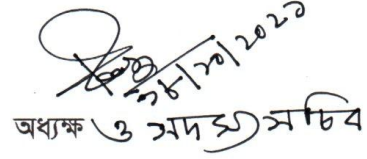 ১৮/১০/২০২১
অধ্যক্ষ ও সদস্য সচিব